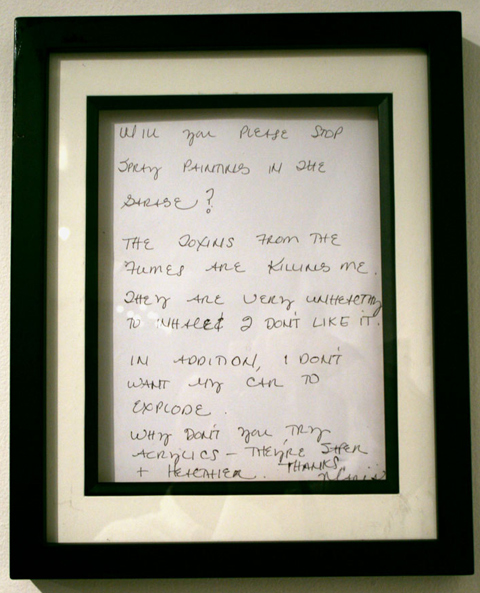 WILL you PLEASE STOP
SPRAY PAINTING IN THE
GARAGE?
THE TOXINS FROM THE
FUMES ARE KILLING ME.
THEY ARE VERY UNHEALTHY
TO INHALE & I DON'T LIKE IT.
IN ADDITION, I DON'T
WANT MY CAR TO
EXPLODE.
WHY DON'T YOU TRY
ACRYLICS – THEY'RE SAFER
+ HEALTHIER. THANKS